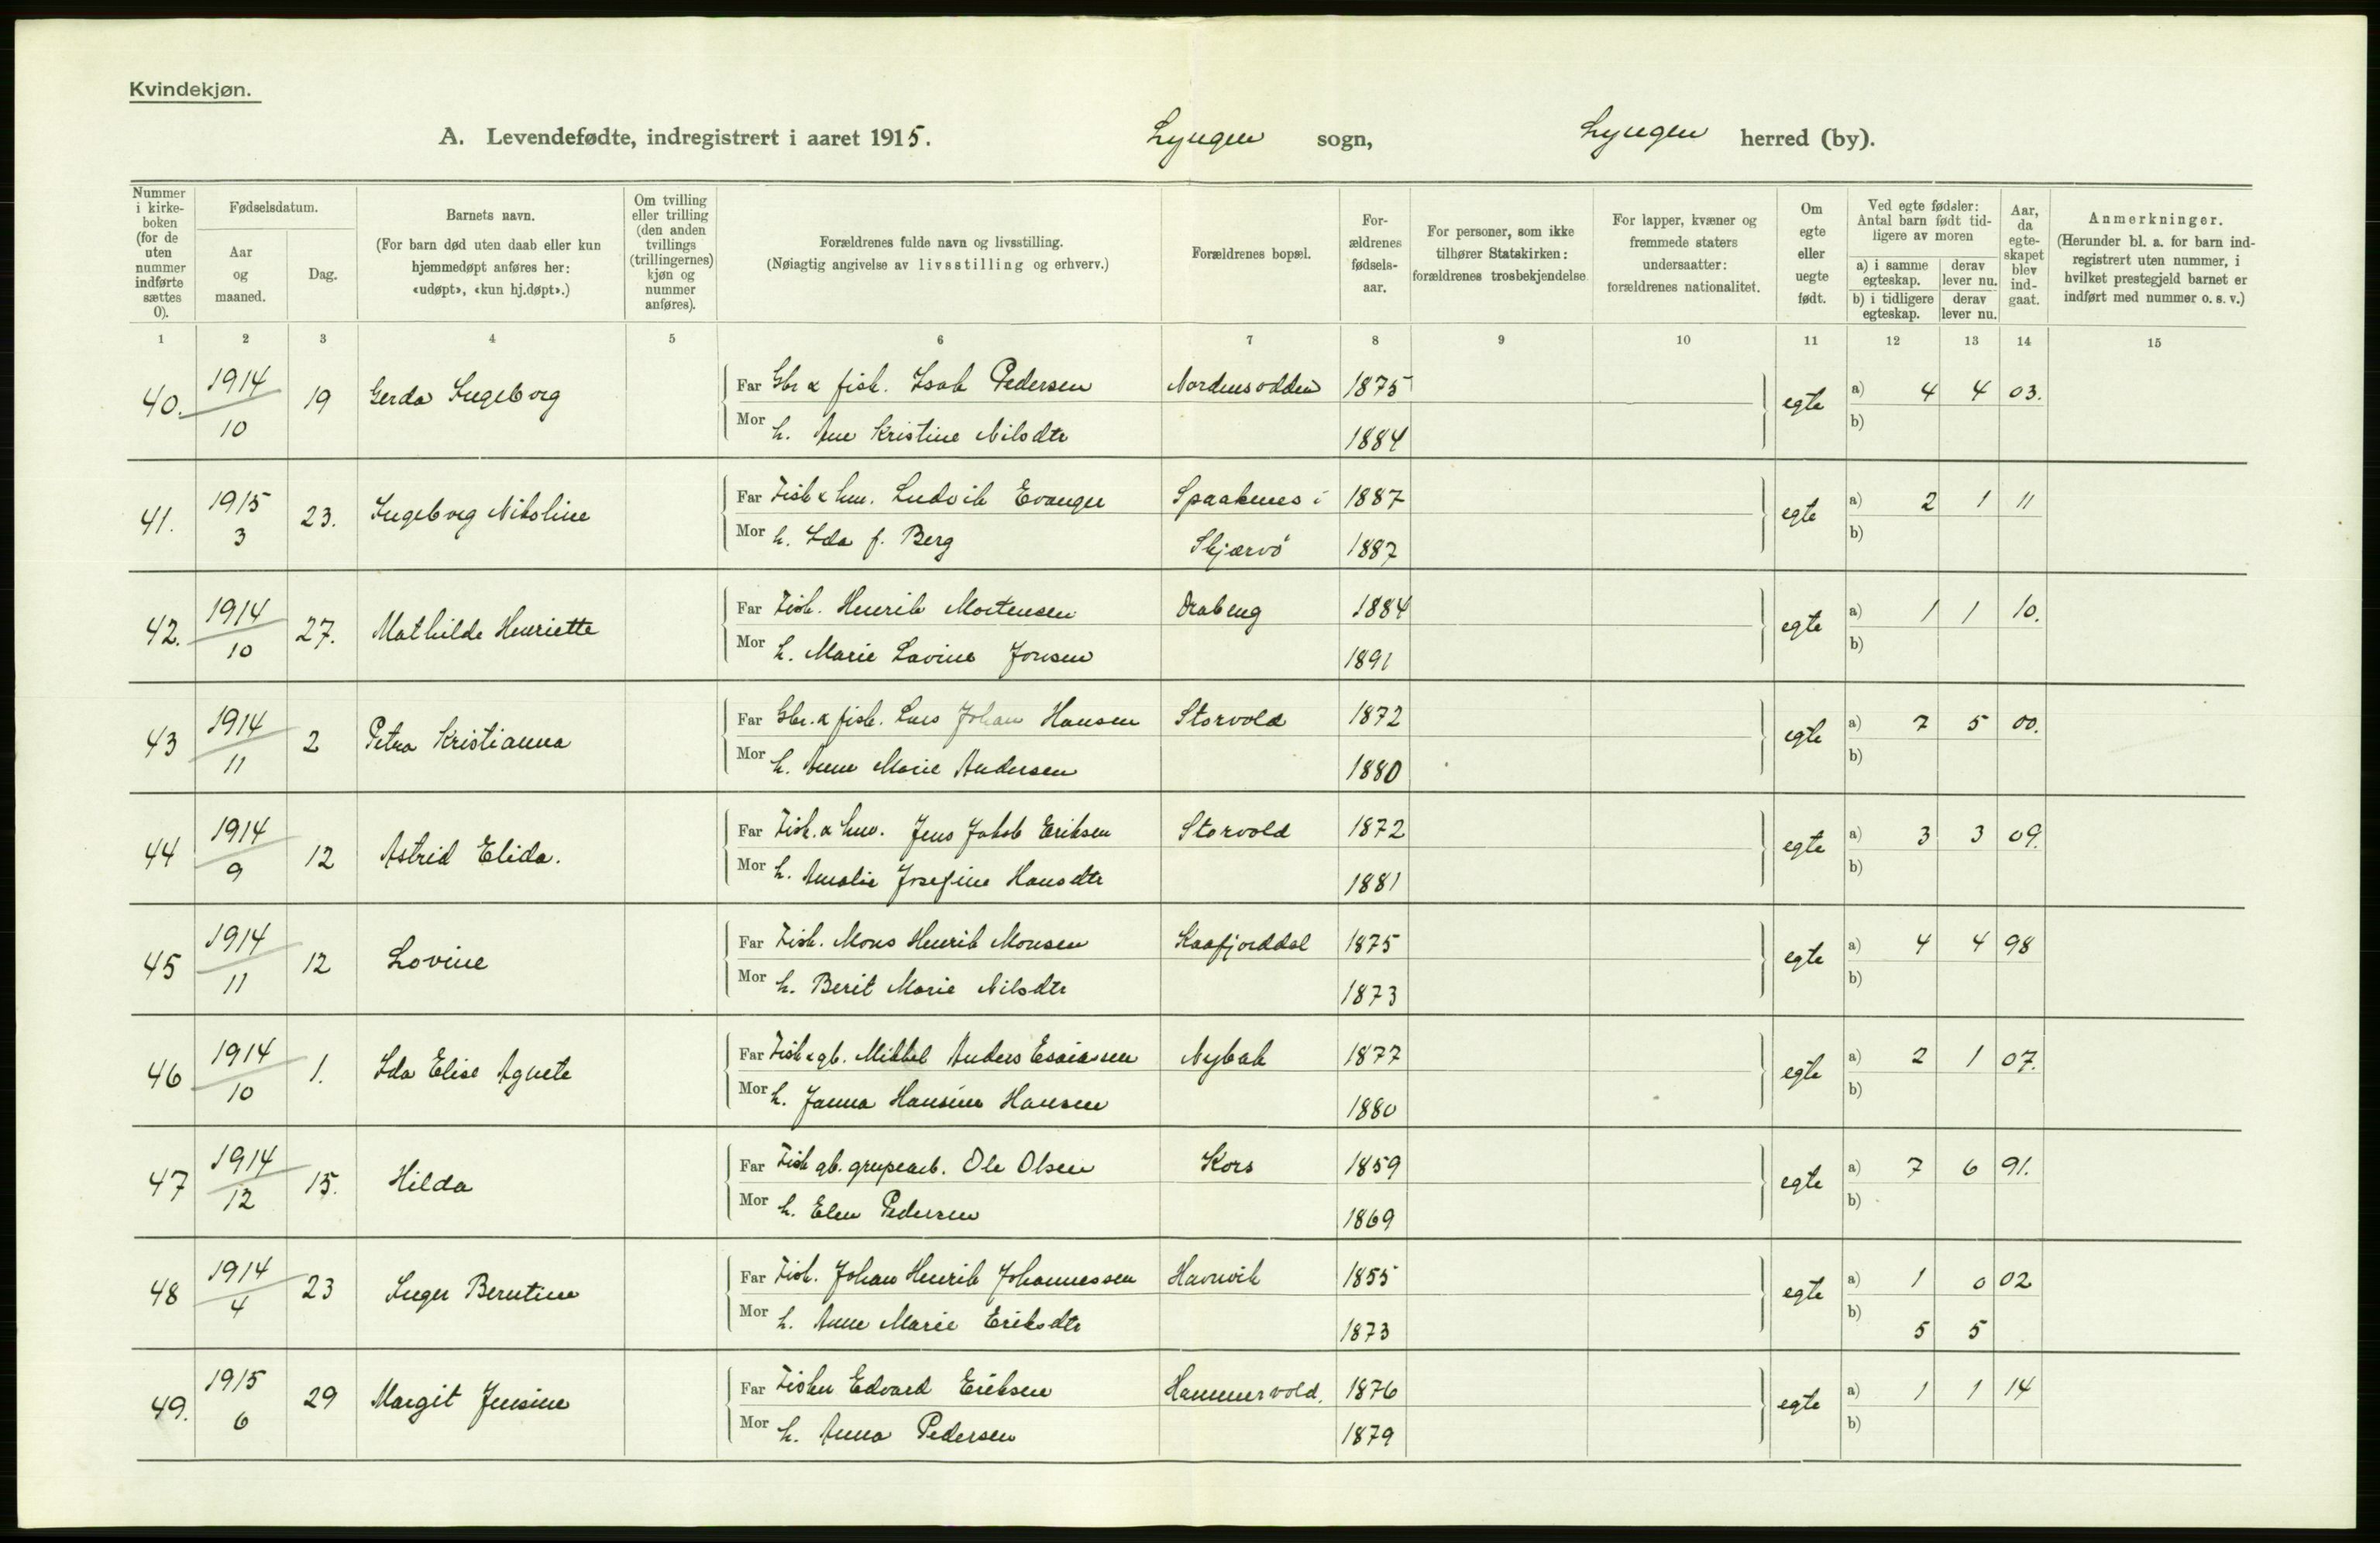 Kvindekjøn.
A. Levendefødte, indregistrert i aaret 1915. Lyngen sogn, Lyngen herred (by).
Nummer i kirke-boken (for de uten nummer indførte sættes 0).
Fødselsdatum.
Aar og maaned.
Dag.
Barnets navn.
(For barn død uten daab eller kun hjemmedøpt anføres her: «udøpt», «kun hj.døpt».)
Om tvilling eller trilling (den anden tvillings (trillingernes) kjøn og nummer anføres).
Forældrenes fulde navn og livsstilling.
(Nøiagtig angivelse av livsstilling og erhverv.)
Forældrenes bopæl.
For-ældrenes fødsels-aar.
For personer, som ikke tilhører Statskirken: forældrenes trosbekjendelse
For lapper, kvæner og fremmede staters undersaatter: forældrenes nationalitet.
Om egte eller uegte født.
Ved egte fødsler: Antal barn født tid-ligere av moren
a) i samme egteskap.
derav lever nu.
b) i tidligere egteskap.
derav lever nu.
Aar, da egte-skapet blev ind-gaat.
Anmerkninger.
(Herunder bl. a. for barn ind-registrert uten nummer, i hvilket prestegjeld barnet er indført med nummer o. s. v.)
1 2 3 4 5 6 7 8 9 10 11 12 13 14 15
40. 1914 10 19 Gerda Ingeborg Far Gbr & fisk. Isak Pedersen Nordmsodden 1875 egte a) 4 4 03.
Mor h. Ane Kristine Nilsdtr 1884 b)
41. 1915 3 23. Ingeborg Nikoline Far Fisk & hm. Ludvik Evanger Spaaknes i 1887 egte a) 2 1 11
Mor h. Ida f. Berg Skjærvö 1887 b)
42. 1914 10 27. Mathilde Henriette Far Fisk. Henrik Mortensen Drabeng 1884 egte a) 1 1 10.
Mor h. Marie Lavine Jonsen 1891 b)
43 1914 11 2 Petra Kristianna Far Gbr. & fisk. Lars Johan Hansen Storvold 1872 egte a) 7 5 00.
Mor h. Anne Marie Andersen 1880 b)
44 1914 9 12 Astrid Elida. Far Fisk. & hm. Jens Jakob Eriksen Storvold 1872 egte a) 3 3 09.
Mor h. Amalie Josefine Hansdtr 1881 b)
45 1914 11 12 Lovine Far Fisk. Mons Henrik Monsen Kaafjorddal 1875 egte a) 4 4 98
Mor h. Berit Marie Nilsdtr 1873 b)
46 1914 10 1. Ida Elise Agnete Far Fisk & gb. Mikkel Anders Esaiassen Nybak 1877 egte a) 2 1 07.
Mor h. Janna Hansine Hansen 1880 b)
47 1914 12 15. Hilda Far Fisk gb. grupearb. Ole Olsen Kors 1859 egte a) 7 6 91.
Mor h. Elen Pedersen 1869 b)
48 1914 4 23 Inger Berntine Far Fisk. Johan Henrik Johannessen Havnvik 1855 egte a) 1 0 02
Mor h. Anne Marie Eriksdtr 1873 b) 5 5
49. 1915 6 29 Margit Jensine Far Fisker Edvard Eriksen Hammervold. 1876 egte a) 1 1 14
Mor h. Anna Pedersen 1879 b)